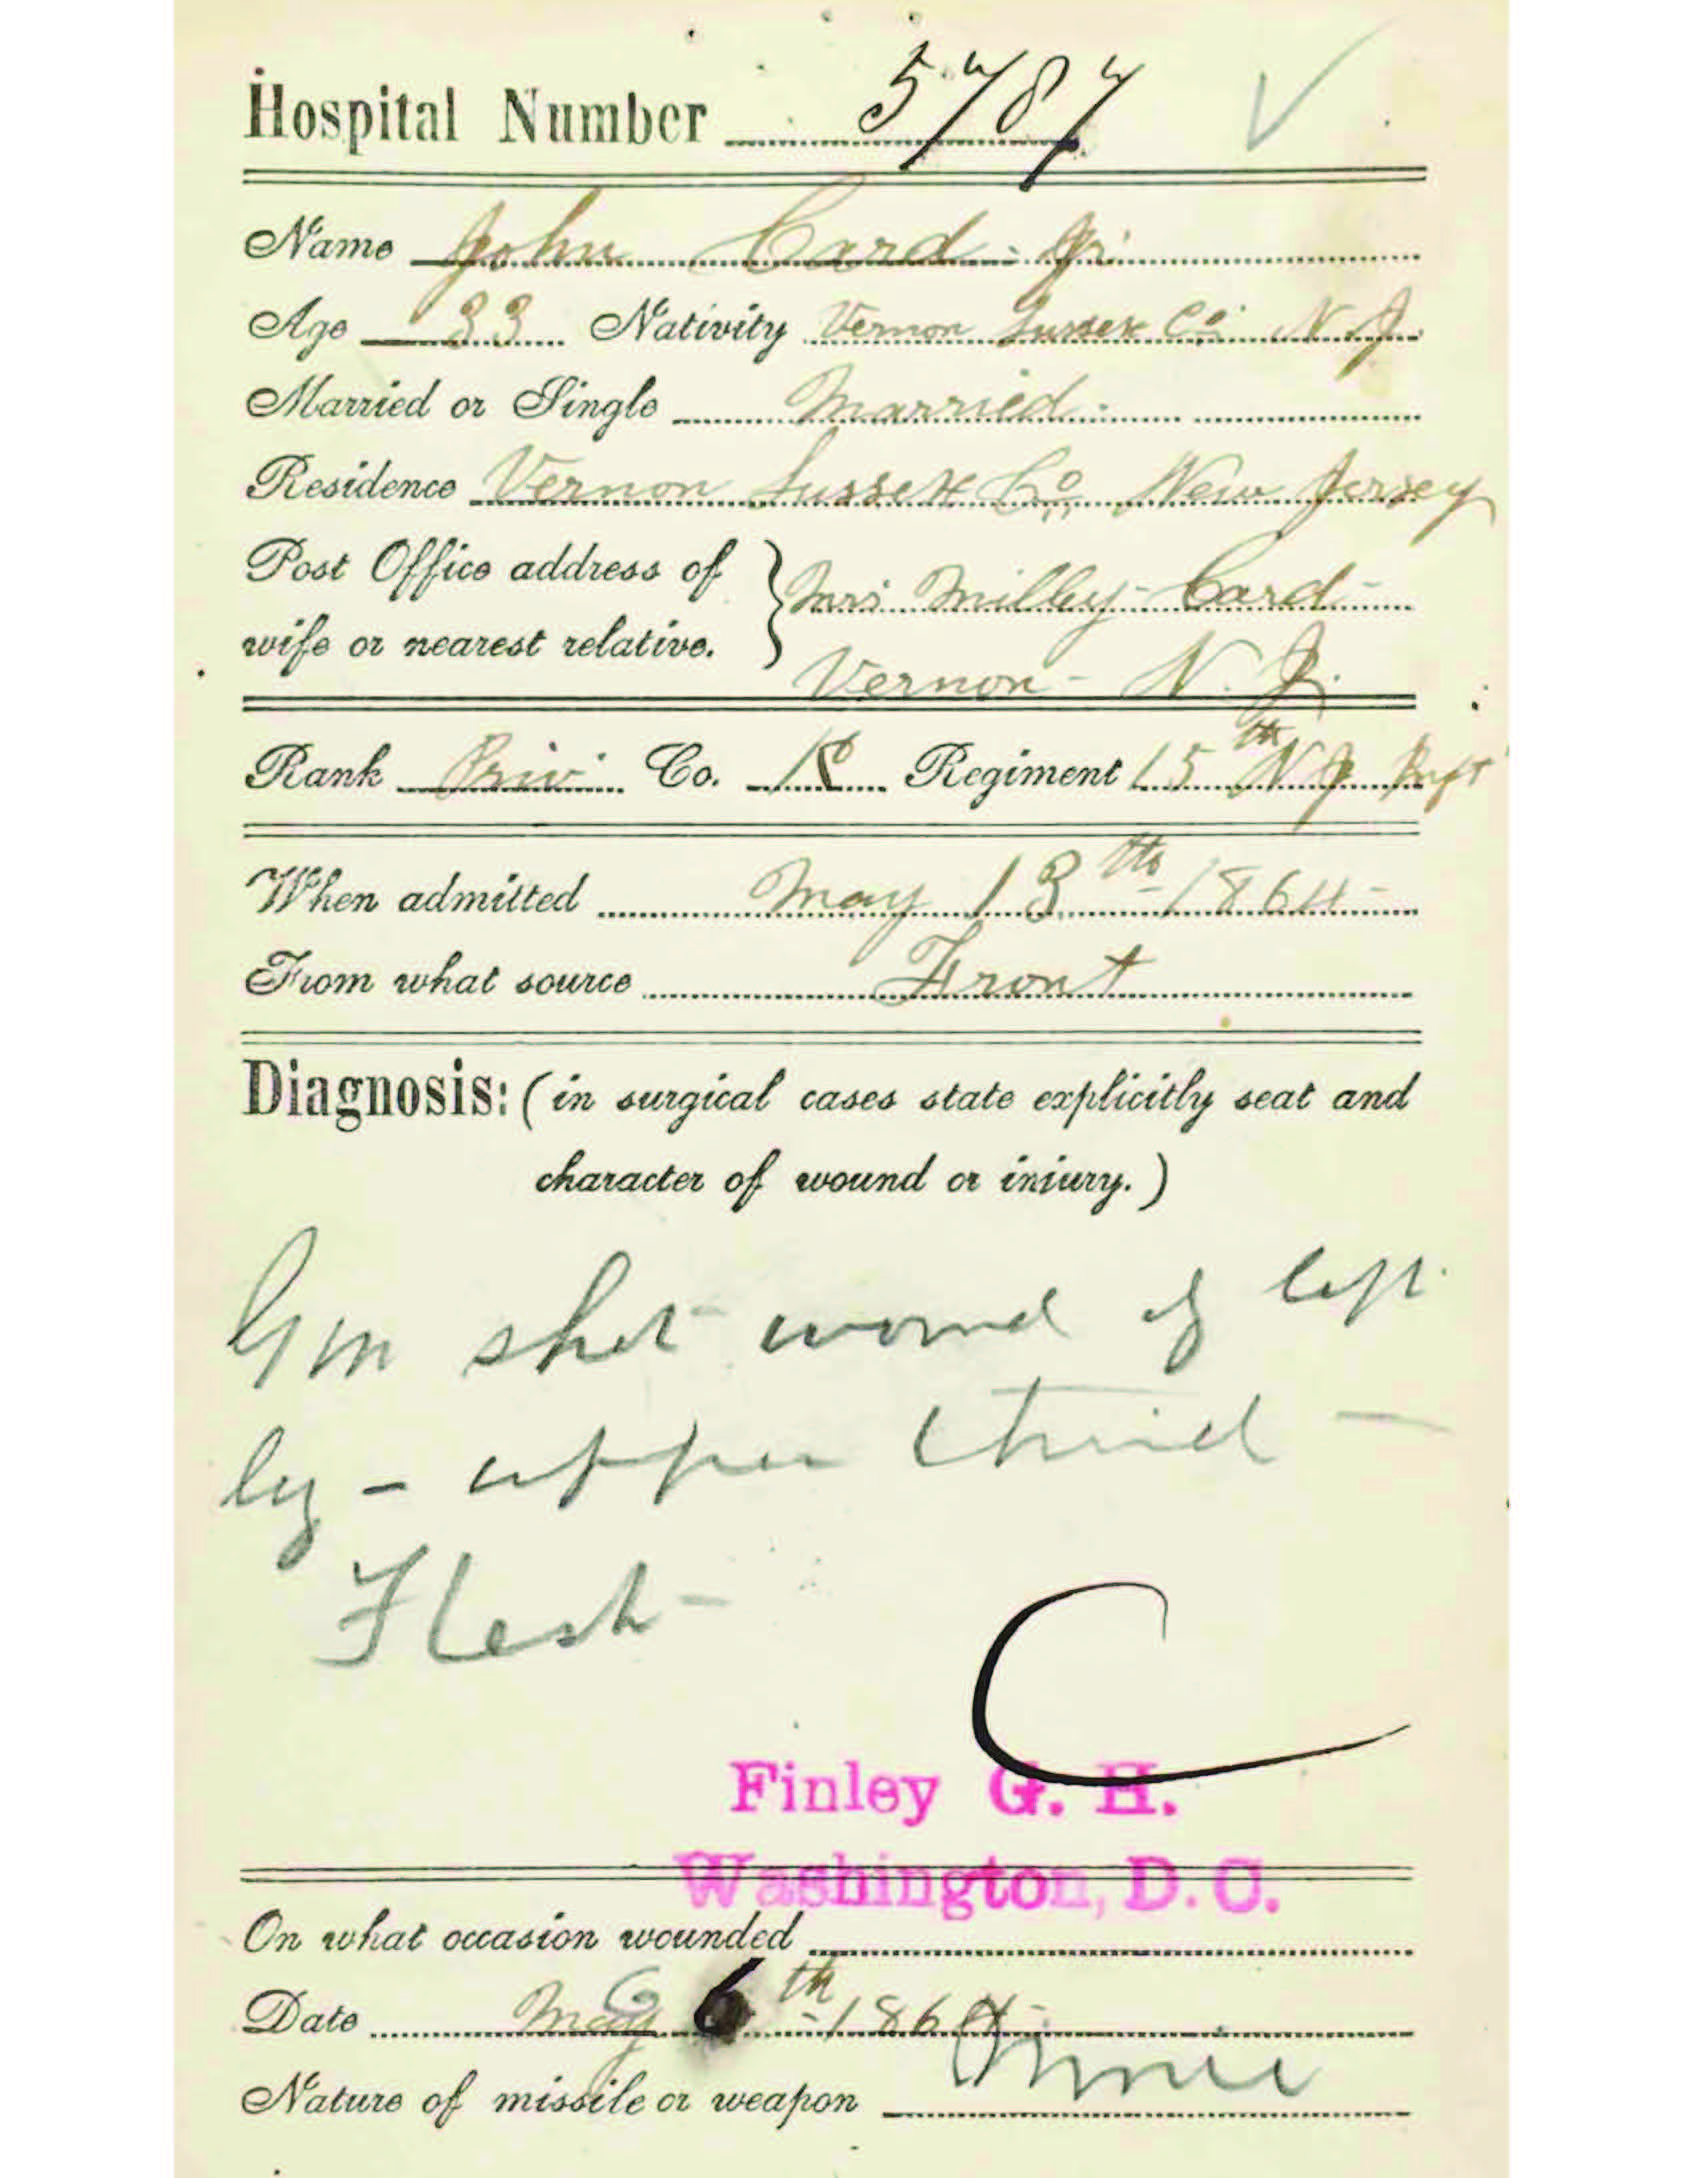 Hospital Number 5787
Name John Card Jr.
Age 33 Nativity Vernon Sussex Co. N.J.
Married or Single Married
Residence Vernon Sussex Co. New Jersey
Post Office address of wife or nearest relative. } Mrs Milly Card
Vernon - N.J.
Rank Priv. Co. K Regiment 15th N J Inft
When admitted May 13th 1864
From what source Front
Diagnosis: (in surgical cases state explicitly seat and
character of wound or injury.)
Gun shot wound of left
leg - upper third -
Flesh -
C
Finley G. H.
Washington, D. C.
On what occasion wounded
Date May 6th 1864
Nature of missile or weapon Minie